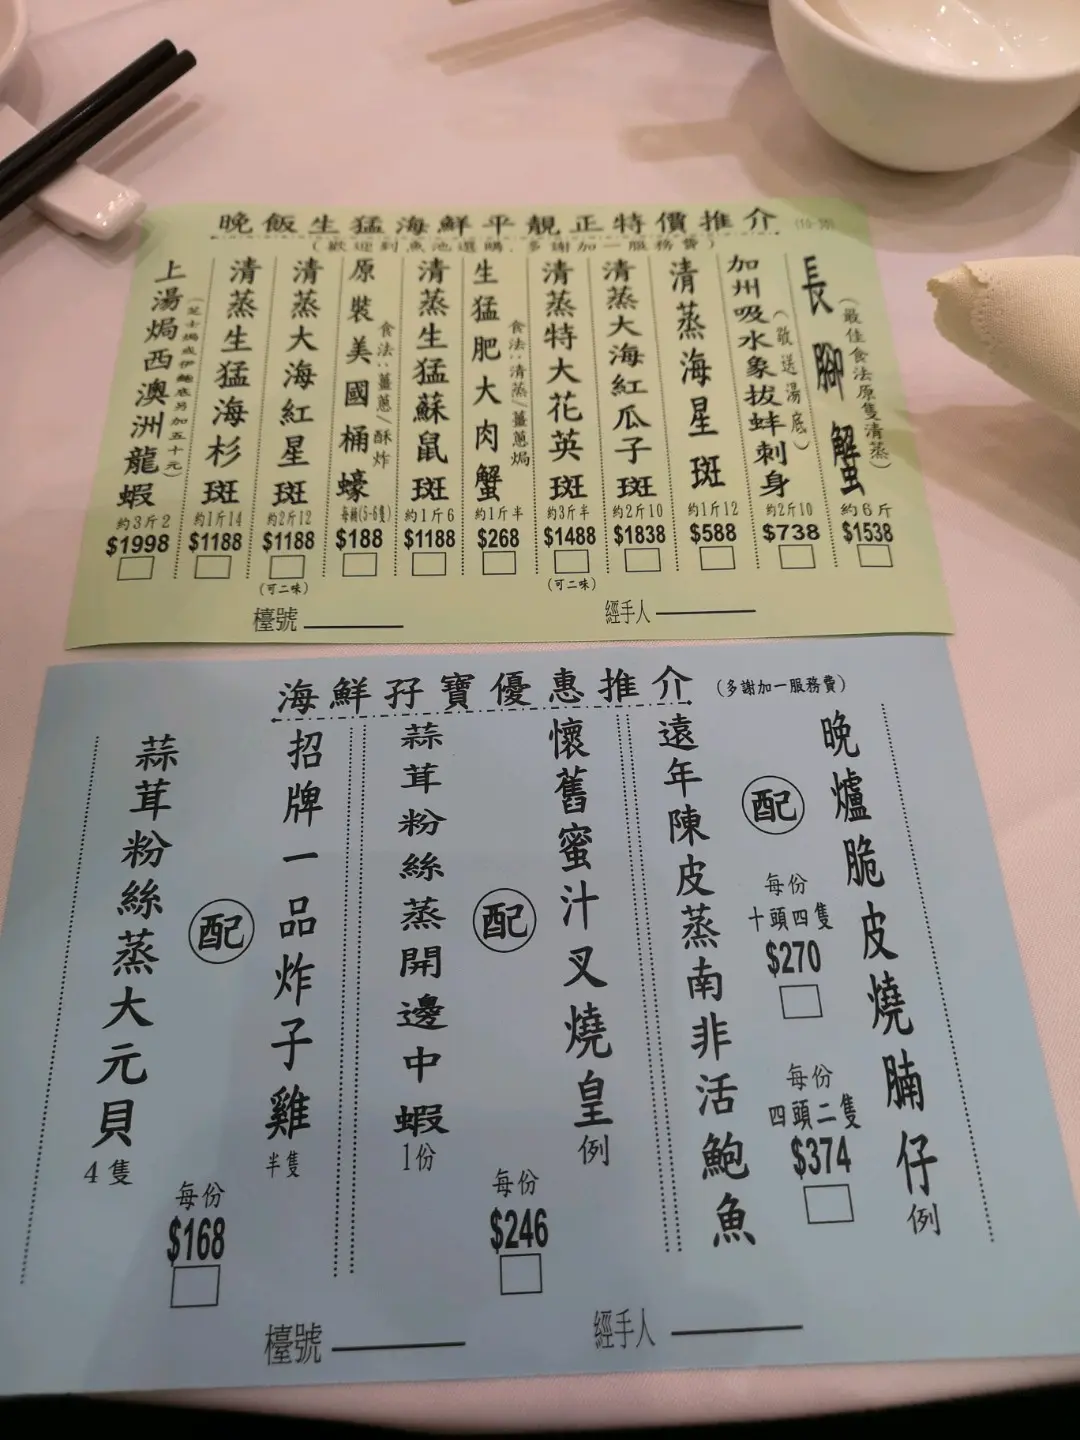 晚飯生猛海鮮平靚正特價推介
(歡迎到魚池選購，多謝加一服務費)
長腳蟹
(最佳食法原隻清蒸)
約6斤
$1538
加州吸水象拔蚌刺身
(敬送湯底)
約2斤10
$738
清蒸海星斑
約1斤12
$588
清蒸大海紅瓜子斑
約2斤10
$1838
清蒸特大花英斑
約3斤半
$1488
(可二味)
生猛肥大肉蟹
食法:清蒸/薑蔥焗
約1斤半
$268
清蒸生猛蘇鼠斑
約1斤6
$1188
原裝美國桶蠔
食法:薑蔥/酥炸
(5-6隻)
$188
清蒸大海紅星斑
約2斤12
$1188
(可二味)
清蒸生猛海杉斑
約1斤14
$1188
上湯焗西澳洲龍蝦
(芝士焗或伊麵底另加五十元)
約3斤2
$1998
檯號
經手人
海鮮孖寶優惠推介
(多謝加一服務費)
晚爐脆皮燒腩仔例
配
遠年陳皮蒸南非活鮑魚
每份
十頭四隻
$270
每份
四頭二隻
$374
懷舊蜜汁叉燒皇例
配
蒜茸粉絲蒸開邊中蝦
1份
每份
$246
招牌一品炸子雞
半隻
配
蒜茸粉絲蒸大元貝
4隻
每份
$168
檯號
經手人